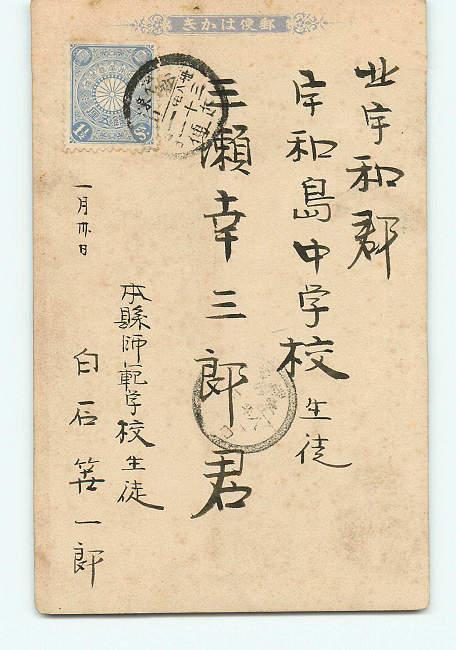 郵便はかき
北宇和郡
宇和島中学校生徒
三瀬幸三郎君
本縣師範学校生徒
白石 一郎
一月卅日
1½ Sⁿ